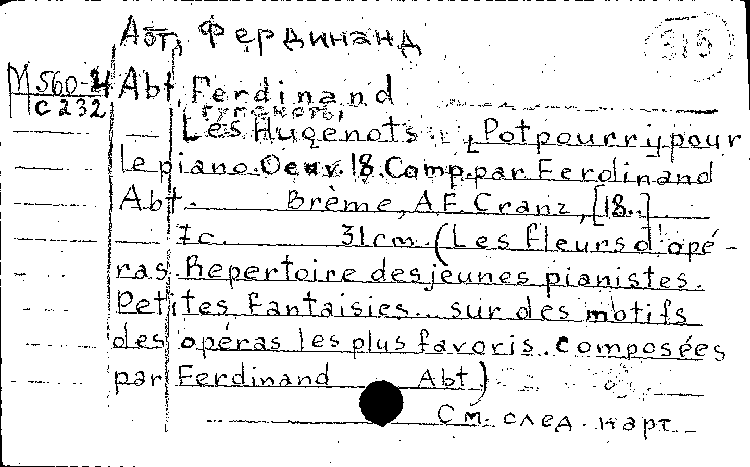 Абт, Фердинанд
315
М560-4
С232
Abt, Ferdinand
Гугеноты
Les Hugenots, Potpourry pour
le piano. Oeuv. 18. Comp. par Ferdinand
Abt. Brème, A.F. Cranz, [18..]
Ic. 31cm. (Les fleurs d'opé-
ras. Repertoire des jeunes pianistes.
Petites fantaisies... sur des motifs
des opéras les plus favoris. Composées
par Ferdinand Abt)
См. след. карт.